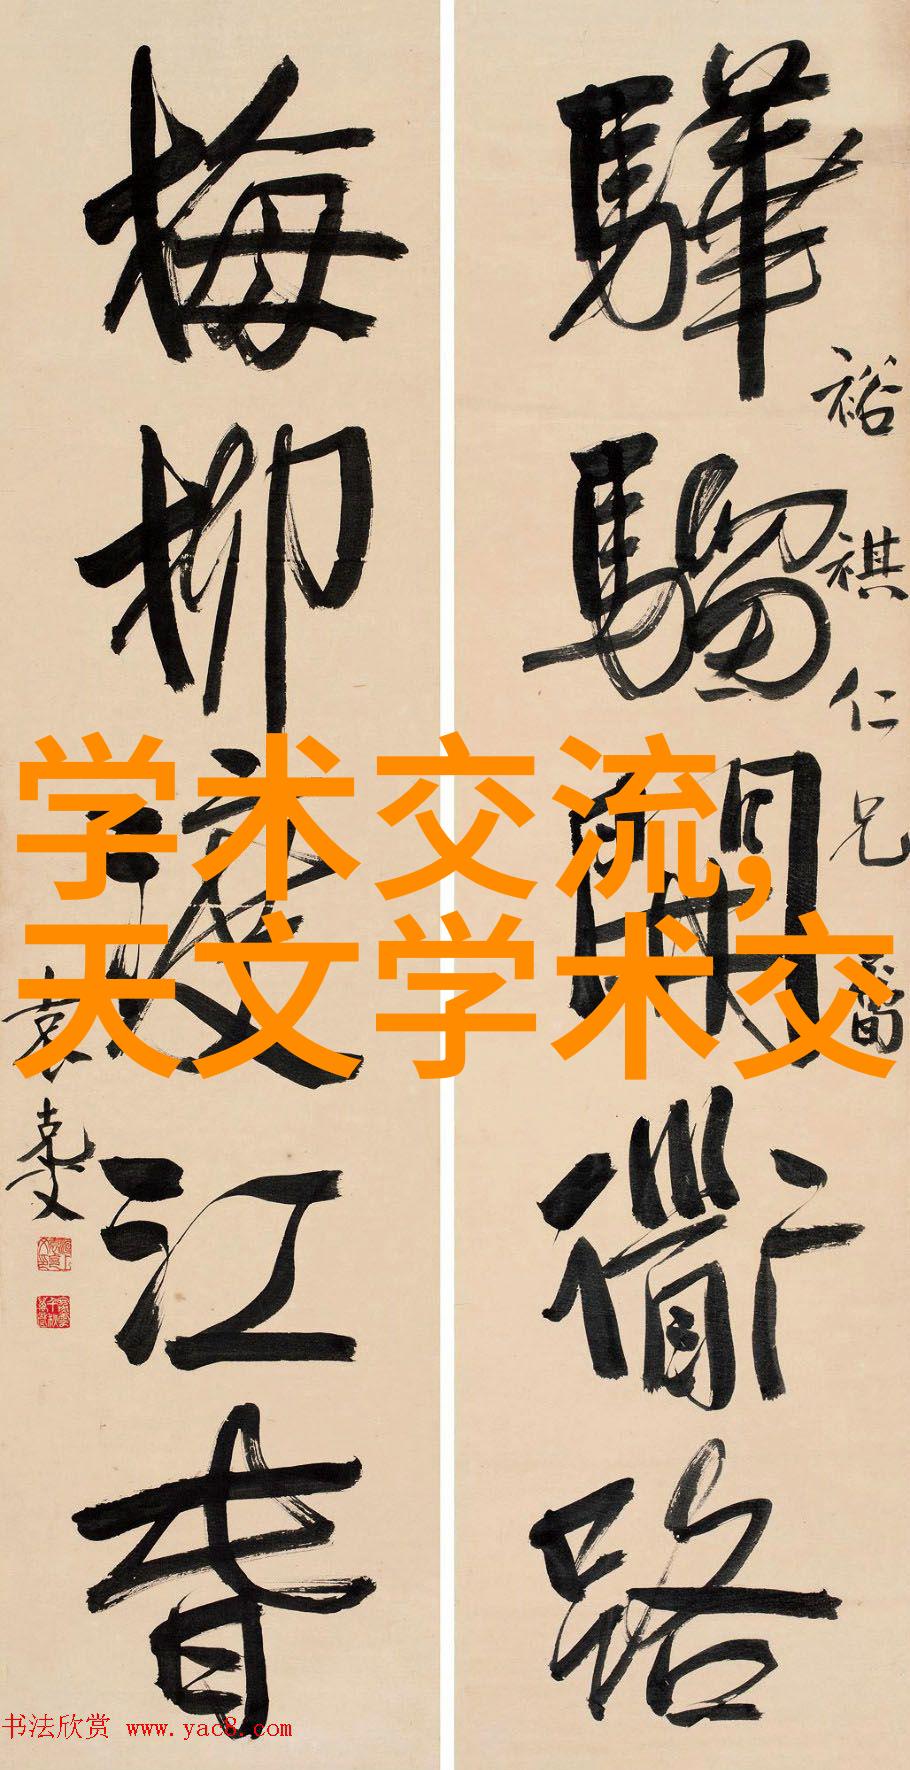 驊騮開衟路
裕祺仁兄
梅柳渡江春
袁克文
学术交流,
天文学术交
书法欣赏 www.yac8.com